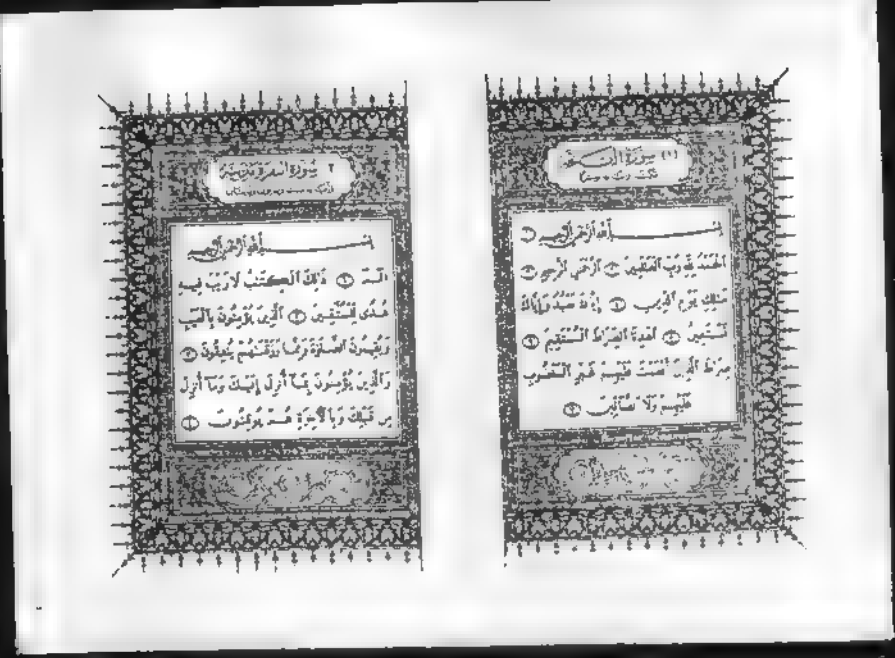 (١) سورة الفاتحة
بسم الله الرحمن الرحيم ①
الحمد لله رب العلمين ② الرحمن الرحيم ③
ملك يوم الدين ④ إياك نعبد وإياك
نستعين ⑤ اهدنا الصراط المستقيم ⑥
صراط الذين أنعمت عليهم غير المغضوب
عليهم ولا الضالين ⑦
٢ سورة البقرة مدنية
بسم الله الرحمن الرحيم
الم ① ذلك الكتب لا ريب فيه
هدى للمتقين ② الذين يؤمنون بالغيب
ويقيمون الصلوة ومما رزقنهم ينفقون ③
والذين يؤمنون بما أنزل إليك وما أنزل
من قبلك وبالآخرة هم يوقنون ④